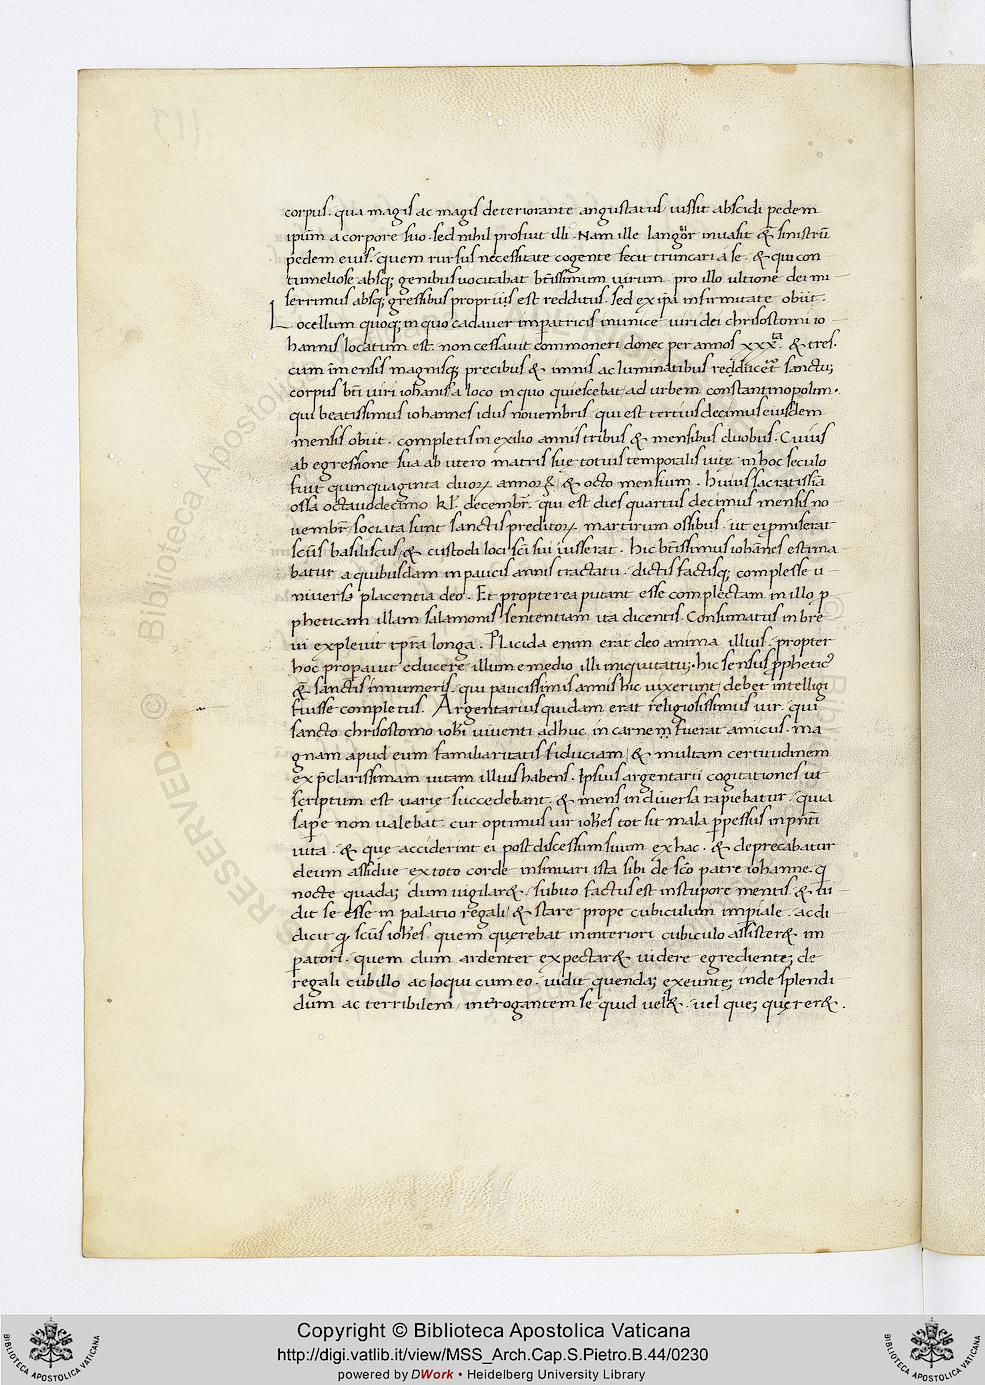 corpus. qua magis ac magis deteriorante angustatus iussit abscidi pedem
ipsum a corpore suo. sed nihil profuit illi. Nam ille langor inuasit & sinistrū
pedem eius. quem rursus necessitate cogente fecit truncari a se. & qui con
tumeliose absq; genibus uocitabat btissimum uirum. pro illo ultione dei mi
serrimus absq; gressibus propriis est redditus. sed ex ipsa infirmitate obiit.
Locellum quoq; in quo cadauer impatricis inunice uiri dei chrisostomi io
hannis locatum est. non cessauit commoneri donec per annos xxx.ta & tres.
cum īmensis magnisq; precibus & imnis ac luminatibus redducer& sanctu;
corpus bti uiri iohanis a loco in quo quiescebat ad urbem constantinopolim.
qui beatissimus iohannes idus nouembris qui est tertius decimus eiusdem
mensis obiit. completis in exilio annis tribus & mensibus duobus. Cuius
ab egressione sua ab utero matris suę totius temporalis uitę in hoc seculo
fuit quinquaginta duoꝝ annoꝝ & octo mensium. huius sacratissīa
ossa octauodecimo kl' decembr̄. qui est dies quartus decimus mensis no
uembr̄ sociata sunt sanctis preditoꝝ martirum ossibus. ut ei pmiserat
sc̄us basiliscus / & custodi loci sci sui iusserat. hic btissimus iohānes estima
batur a quibusdam in paucis annis tractatu. dictis factisq; complesse u
niuersa placentia deo. Et propterea putant esse complectam in illo p
pheticam illam salamonis sententiam ita dicentis. Consumatus in bre
ui expleuit tpr̄a longa. Placida enim erat deo anima illius. propter
hoc properauit educere illum e medio illi iniquitatu;. hic sensus ꝓphetic9
& sanctis innumeris. qui paucissimis annis hic uixerunt / debet intelligi
fuisse completus. Argentarius quidam erat religiosissimus uir. qui
sancto chrisostomo iohi uiuenti adhuc in carnem fuerat amicus. ma
gnam apud eum familiaritatis fiduciam / & multam certitudinem
ex p̄clarissimam uitam illius habens. Ipsius argentarii cogitationes ut
scriptum est uarię succedebant. & mens in diuersa rapiebatur. quia
sape non ualebat. cur optimus uir ioh̄es tot sit mala ꝑpessus in pn̄ti
uita. & quę acciderint ei post discessum suum ex hac. & deprecabatur
deum assidue ex toto corde insinuari ista sibi de sc̄o patre iohanne. q̄
nocte quada; dum uigilar&. subito factus est in stupore mentis & ui
dit se esse in palatio regali / & stare prope cubiculum imp̄iale. ac di
dicit q̄ sc̄us ioh̄es. quem quęrebat in interiori cubiculo assister& im
peratori. quem dum ardenter expectar& uidere egrediente; de
regali cubillo ac loqui cum eo. uidit quenda; exeunte; inde splendi
dum ac terribilem / interrogantem se quid uell&. uel que; quęrer&.